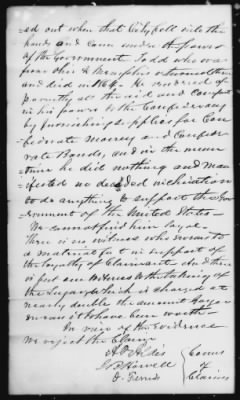 ed out when that City fell into the
hands and Came under the power
of the Government. Todd who was
from Ohio & Memphis
and died in 1864. He rendered ap
parently all the aid and Comfort
in his power to the Confederacy
by furnishing supplies for Con
federate money and Confede
rate Bonds, and in the mean
time he did nothing and man
ifested no decided inclination
to do anything to support the Gov
ernment of the United States -
We cannot find him loyal.
There is no witness who swears to
a material fact in support of
the loyalty of Claimant. And there
is but one Witness to the taking of
the Sugar which is charged at
nearly double the amount
swears it to have been worth -
In view of the evidence
we reject the Claim
A. O. Aldis
J B Howell
O. Ferriss
Comrs
of
Claims